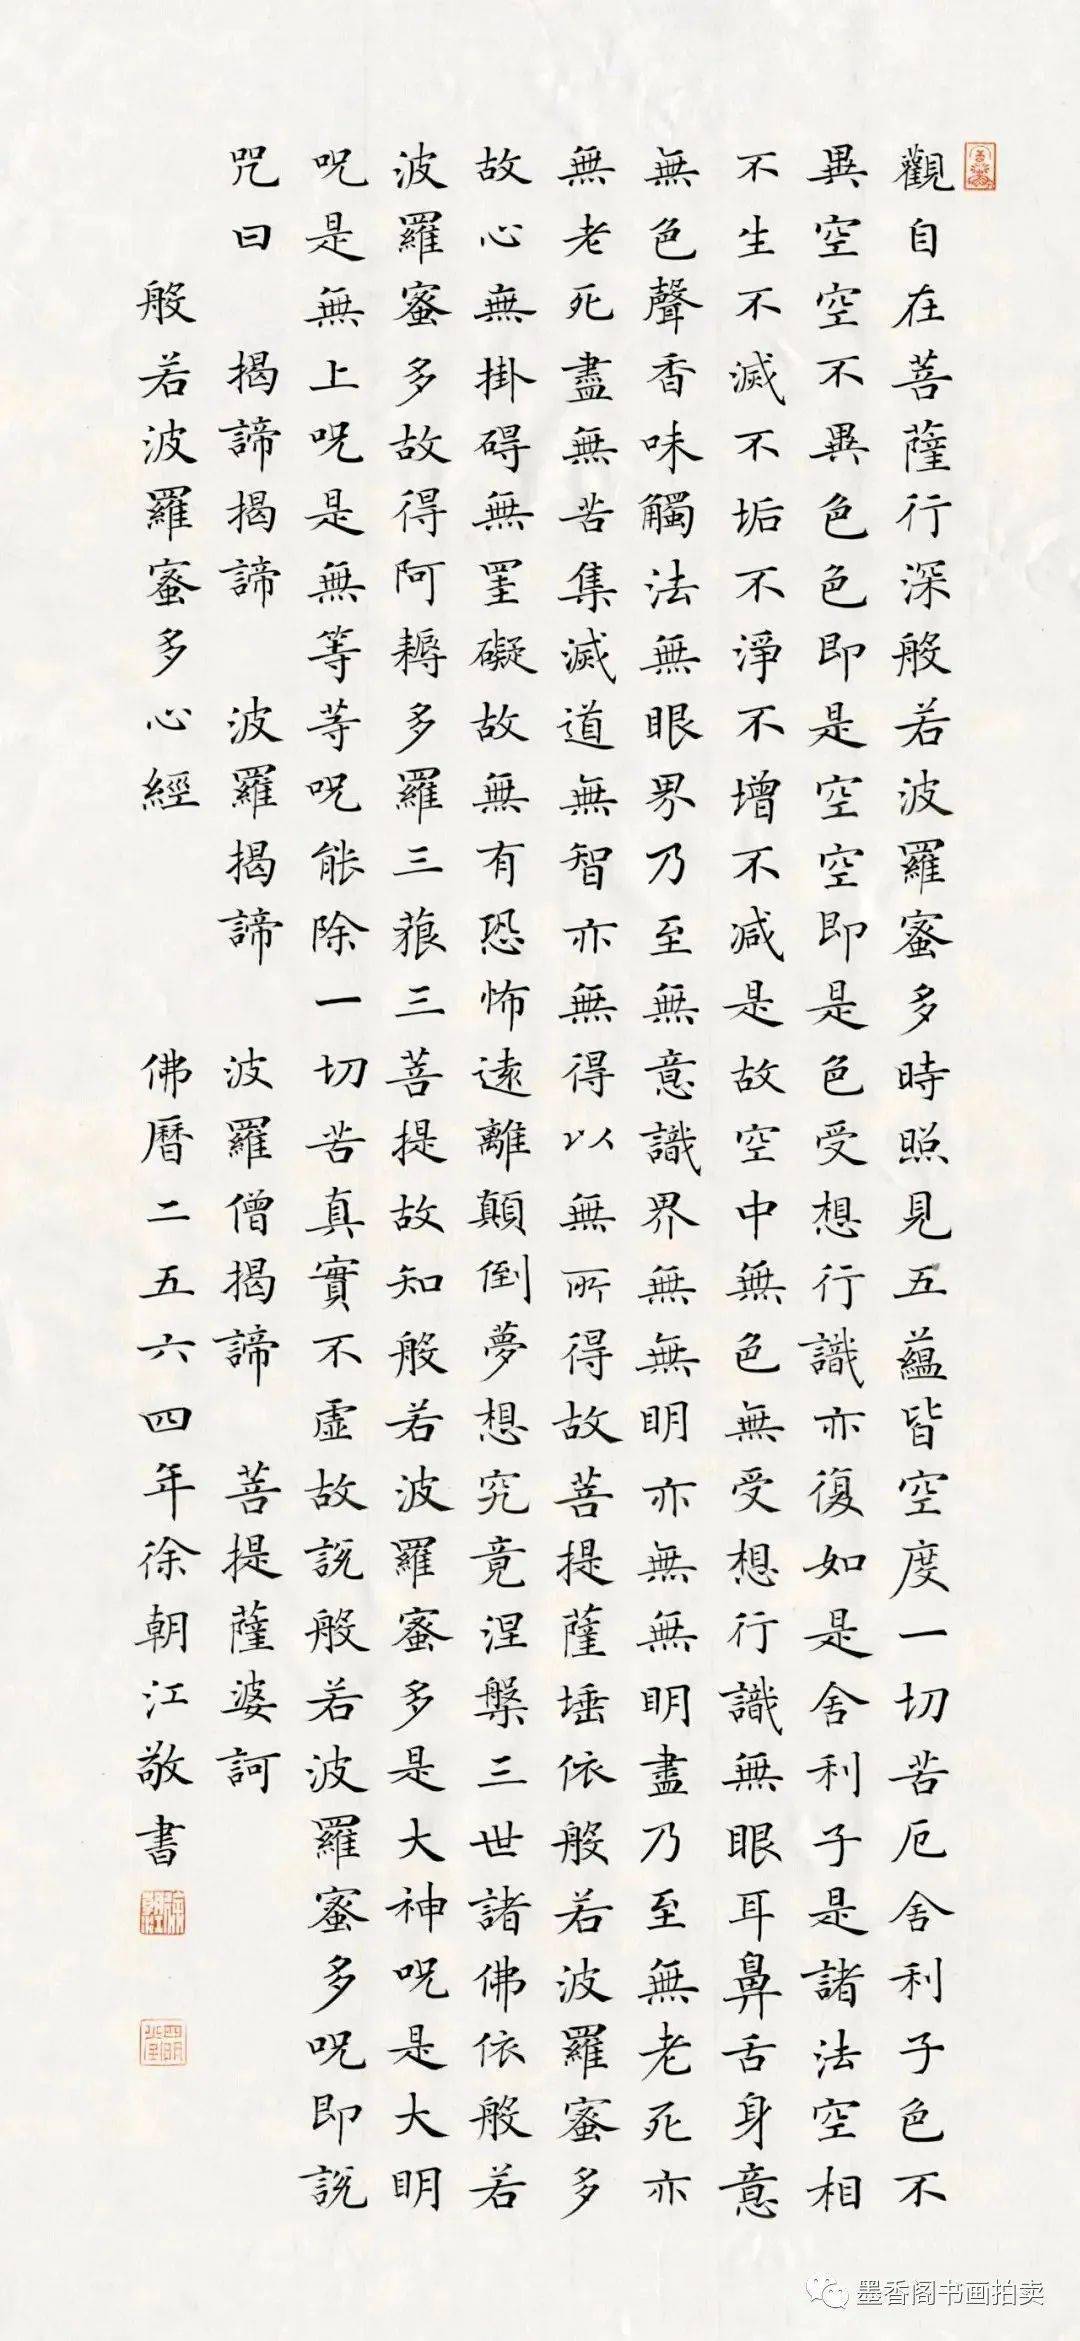 觀自在菩薩行深般若波羅蜜多時照見五蘊皆空度一切苦厄舍利子色不
異空空不異色色即是空空即是色受想行識亦復如是舍利子是諸法空相
不生不滅不垢不淨不增不減是故空中無色無受想行識無眼耳鼻舌身意
無色聲香味觸法無眼界乃至無意識界無無明亦無無明盡乃至無老死亦
無老死盡無苦集滅道無智亦無得以無所得故菩提薩埵依般若波羅蜜多
故心無掛碍無罣礙故無有恐怖遠離顛倒夢想究竟涅槃三世諸佛依般若
波羅蜜多故得阿耨多羅三藐三菩提故知般若波羅蜜多是大神呪是大明
呪是無上呪是無等等呪能除一切苦真實不虛故說般若波羅蜜多呪即說
咒曰 揭諦揭諦 波羅揭諦 波羅僧揭諦 菩提薩婆訶
般若波羅蜜多心經 佛曆二五六四年徐朝江敬書
墨香阁书画拍卖